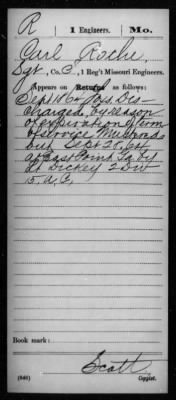 R | 1 Engineers. | Mo.
Carl Roche
Sgt., Co. C, 1 Reg't Missouri Engineers.
Appears on Returns as follows:
Sept 1864 Dis-
charged by reason
of expiration of term
of service Mustered
out Sept 28, 64
at East Point Ga by
Lt Dickey 2 Div
15. A.C.
Book mark:
Scott
(646) Copyist.